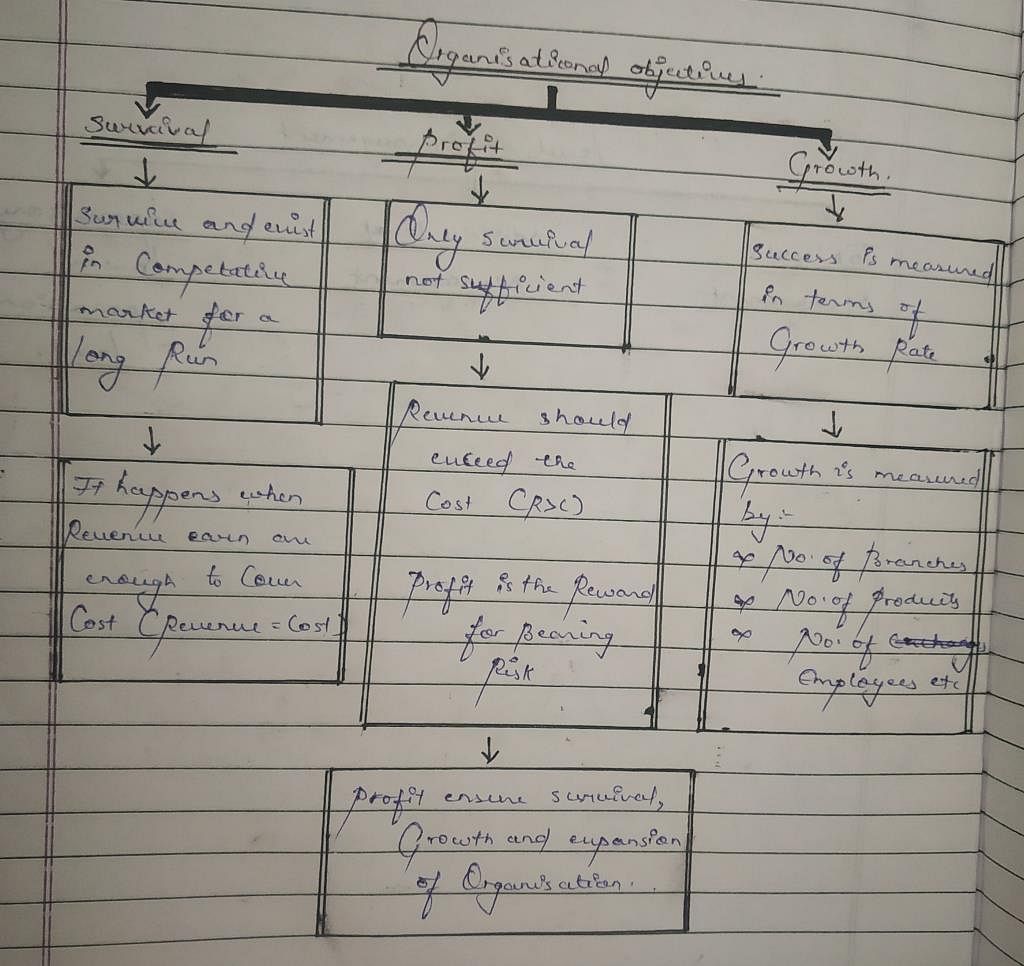 Organisational objectives.
Survival
Survive and exist
in Competative
market for a
long Run
It happens when
Revenue earn are
enough to Cover
Cost (Revenue = Cost)
Profit
Only survival
not sufficient
Revenue should
exceed the
Cost (R>C)
Profit is the Reward
for Bearing
Risk
Profit ensure survival,
Growth and expansion
of Organisation.
Growth.
Success is measured
in terms of
Growth Rate
Growth is measured
by:-
No. of Branches
No. of Products
No. of
Employees etc